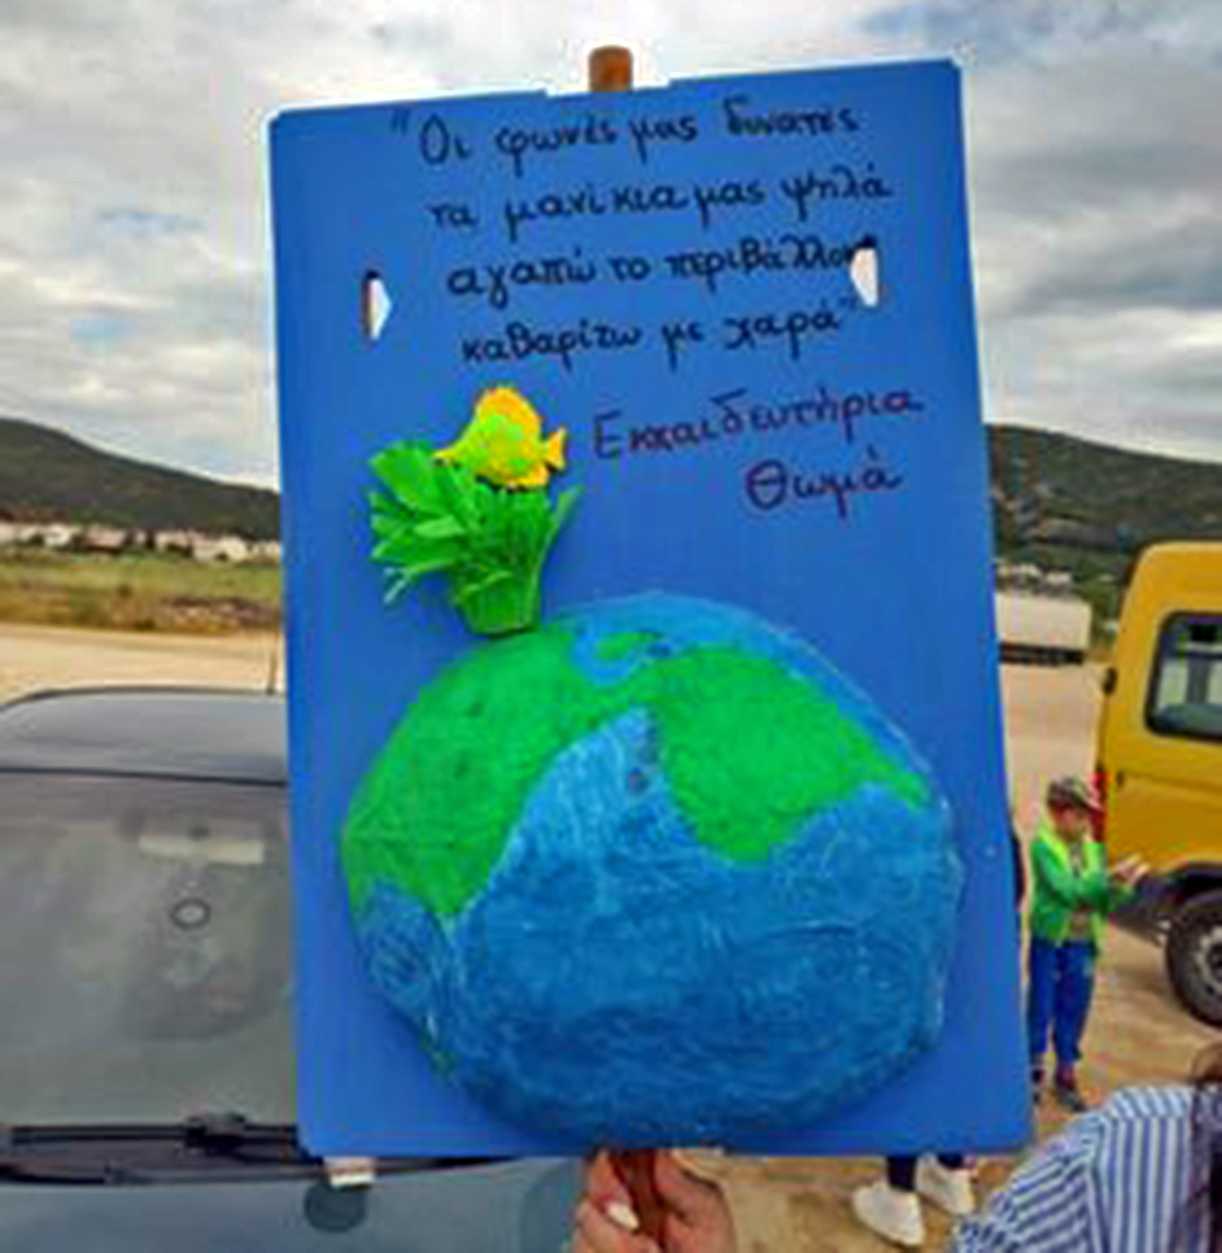 "Οι φωνές μας δυνατές
τα μανίκια μας ψηλά
αγαπώ το περιβάλλον
καθαρίζω με χαρά"
Εκπαιδευτήρια
Θωμά